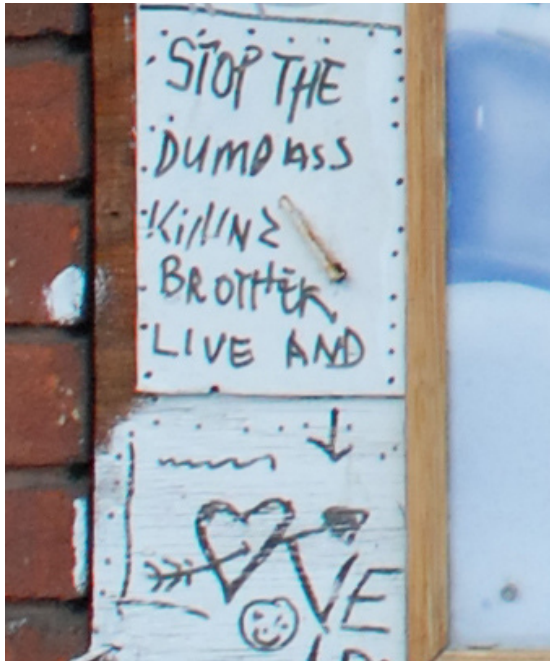 STOP THE
DUMDASS
KillNG
BROTHER
LIVE AND
VE